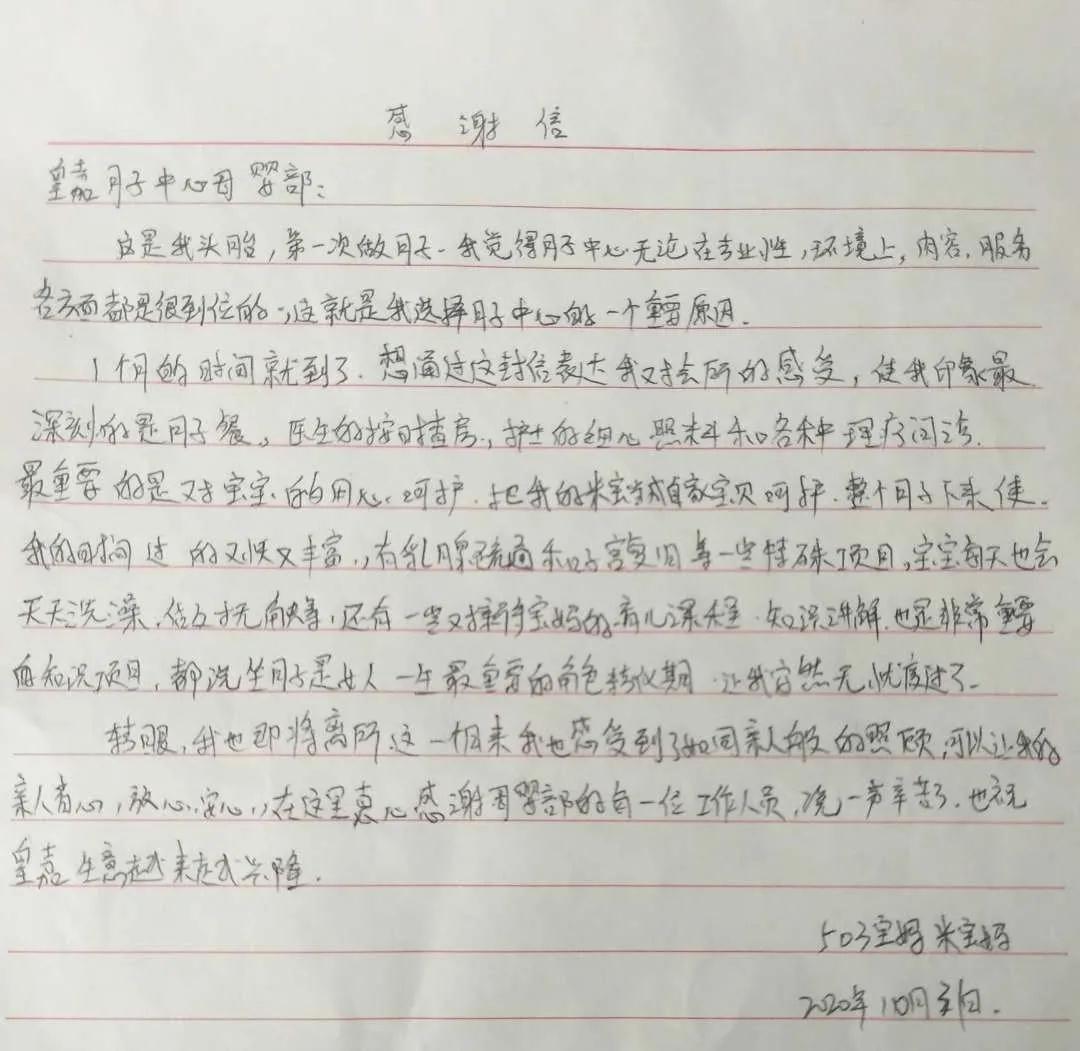 感谢信
皇嘉月子中心母婴部：
这是我头胎，第一次做月子.我觉得月子中心无论在专业性，环境上，内容.服务
各方面都是很到位的.,这就是我选择月子中心的一个重要原因.
1个月的时间就到了.想通过这封信表达我对会所的感受，使我印象最
深刻的是月子餐.，医生的按时查房.，护士的细心照料和各种理疗问诊.
最重要的是对宝宝的用心.呵护.把我的米宝当成自家宝贝呵护.整个月子下来使.
我的时间过的又快又丰富.，有乳腺疏通和子宫复旧等一些特殊项目，宝宝每天也会
天天洗澡.抚触等，还有一些对新手宝妈的育儿课程.知识讲解.也是非常重要
的知识项目，都说坐月子是女人一生最重要的角色转化期.让我安然无忧度过了.
转眼，我也即将离所.这一个月来我也感受到了如同亲人般的照顾，可以让我的
亲人省心，放心.安心.，在这里衷心感谢母婴部的每一位工作人员.说一声辛苦了.也祝
皇嘉生意越来越兴隆.
503宝妈 米宝妈
2020年10月